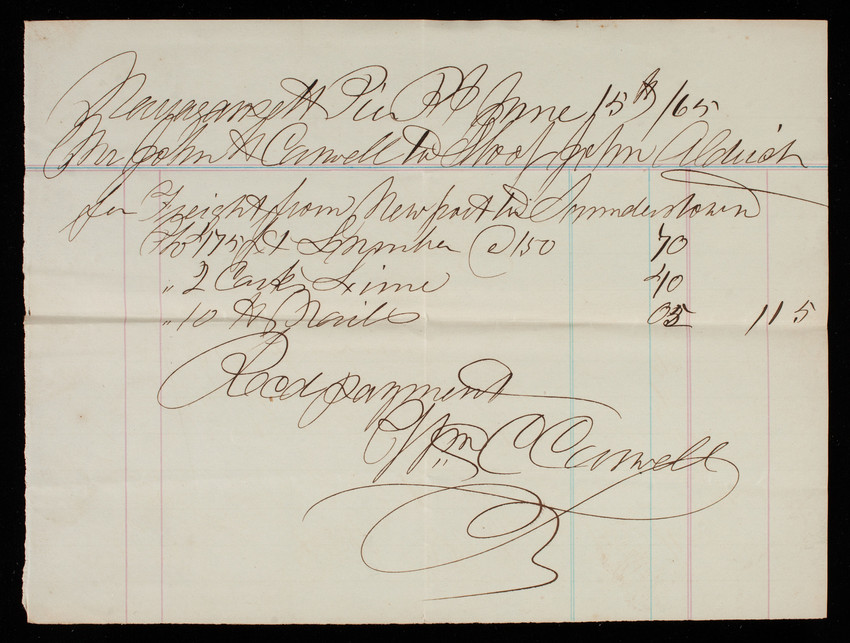 Narragansett Pier RI June 15th /65
Mr John H Caswell To Sloop John Aldrich
for Freight from Newport to Saunderstown
475 ft Lumber @ 150 70
" 2 Casks Lime 40
" 10 Nails 05 115
Recd payment
Wm C Caswell